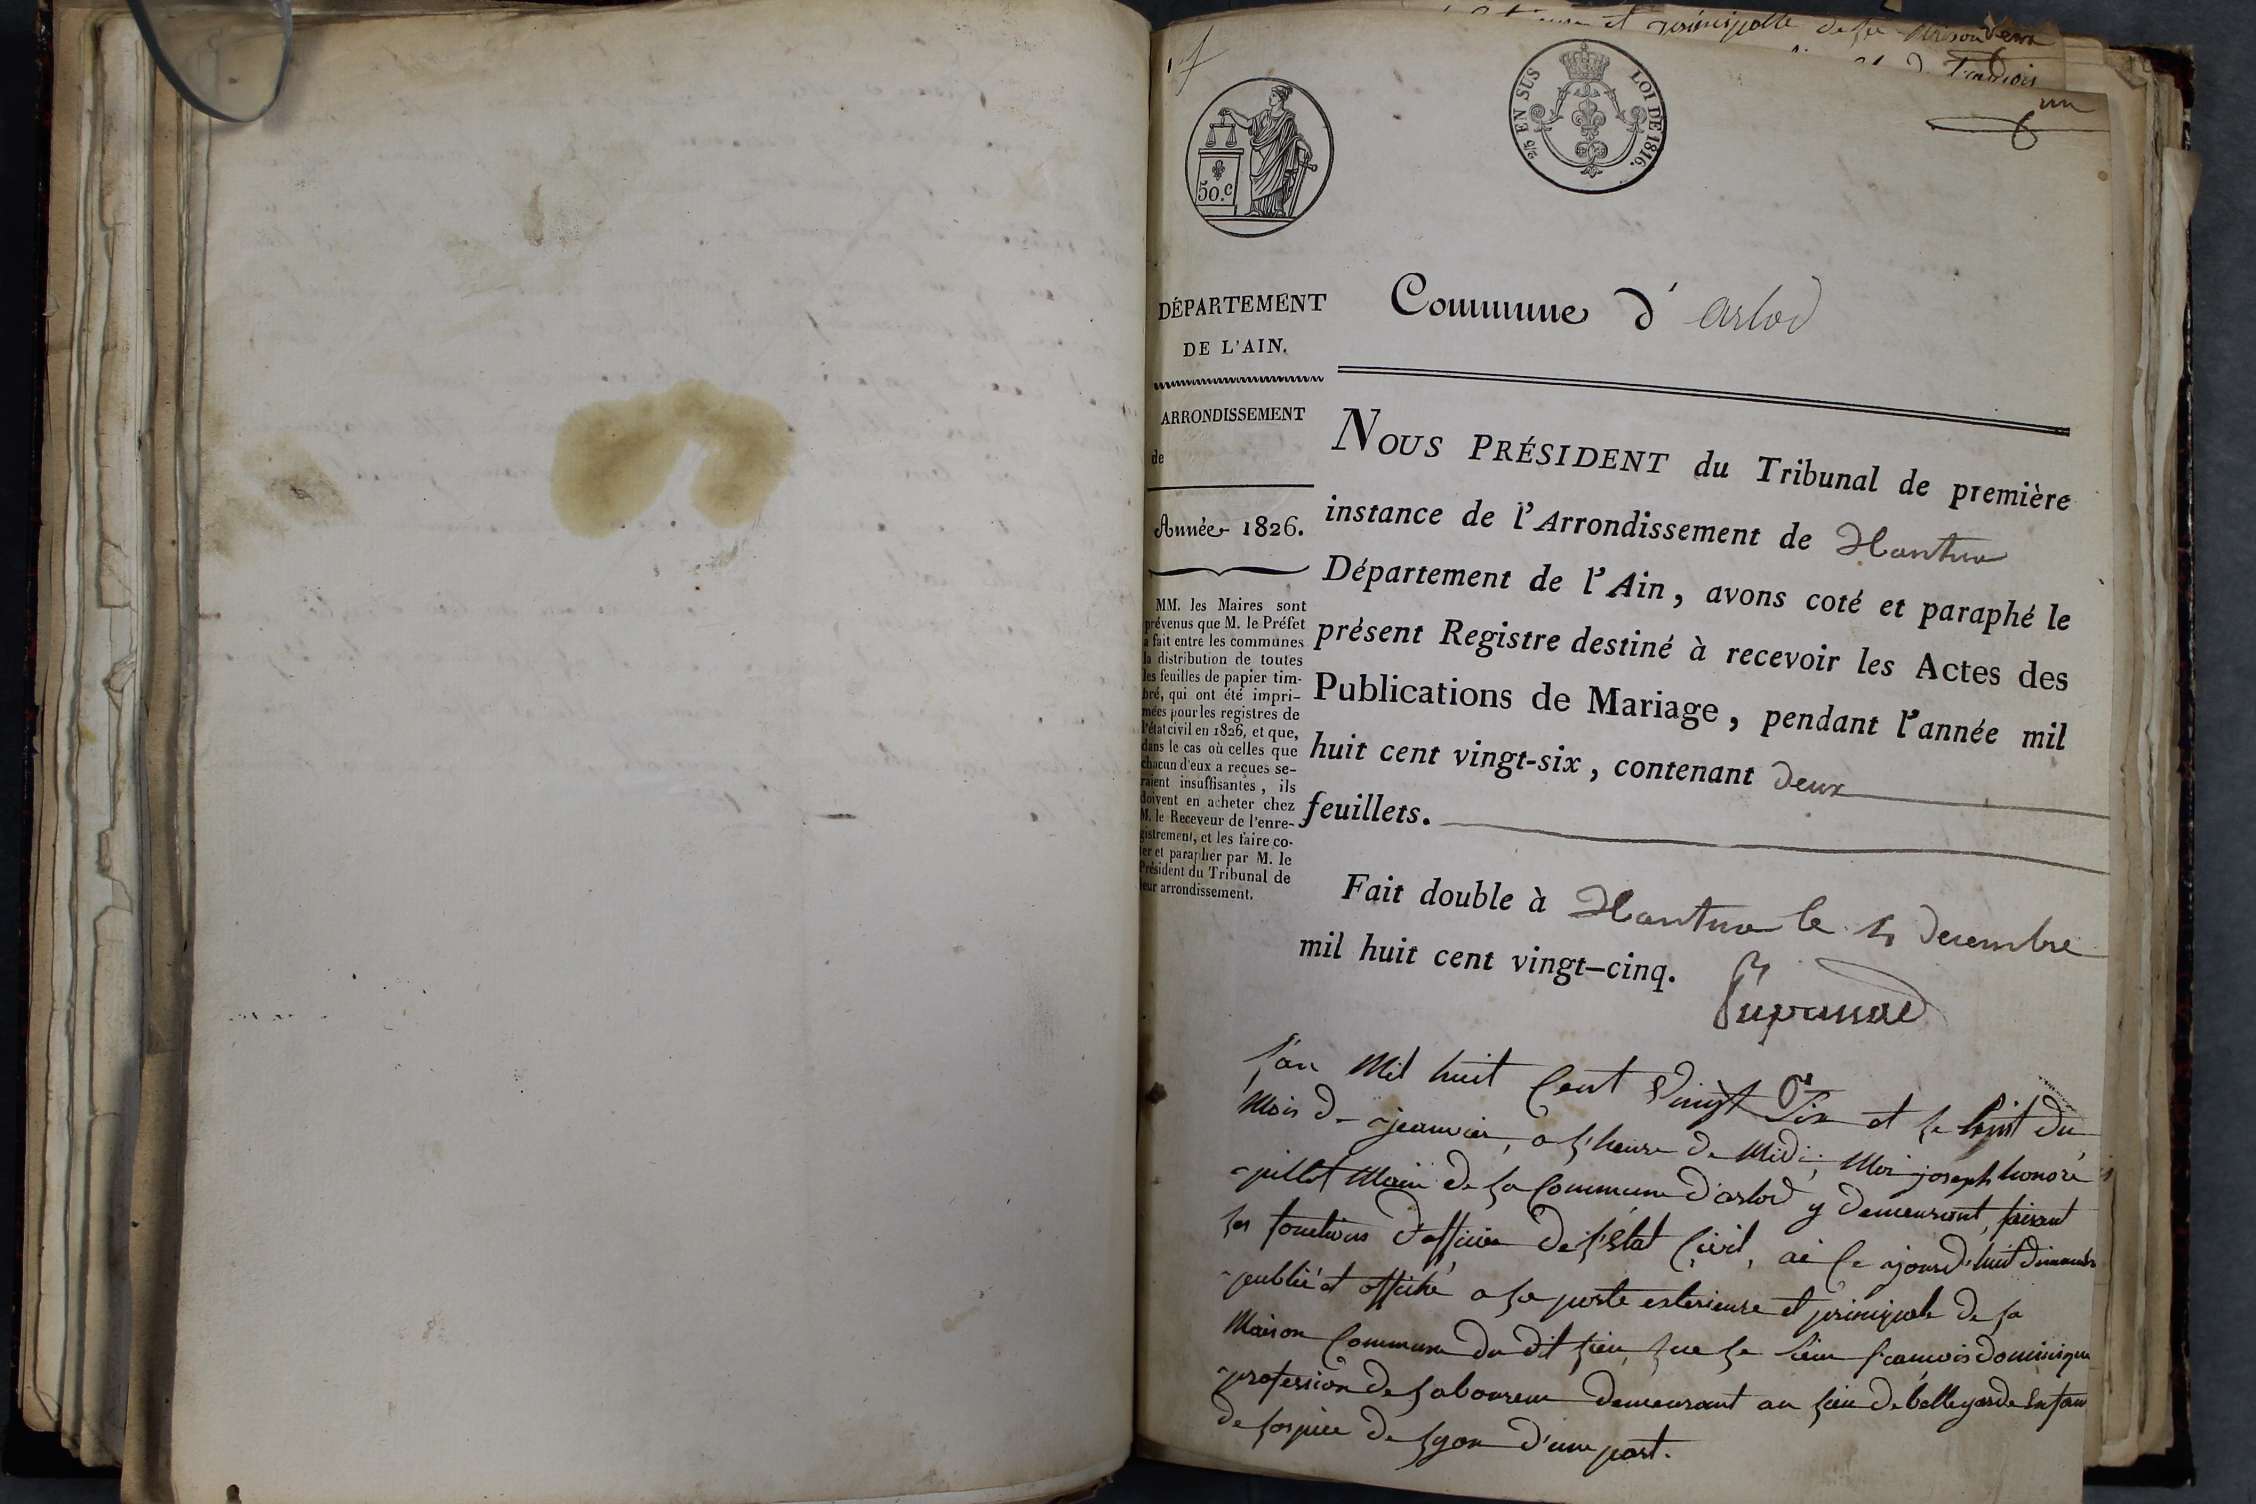 et principalle de la Maison
un
50.c
2/5 EN SUS LOI DE 1816.
DÉPARTEMENT
DE L'AIN.
ARRONDISSEMENT
de
Année 1826.
MM. les Maires sont
prévenus que M. le Préfet
a fait entre les communes
la distribution de toutes
les feuilles de papier tim-
bré, qui ont été impri-
mées pour les registres de
l'état civil en 1826, et que,
dans le cas où celles que
chacun d'eux a reçues se-
raient insuffisantes, ils
doivent en acheter chez
M. le Receveur de l'enre-
gistrement, et les faire co-
ter et parapher par M. le
Président du Tribunal de
leur arrondissement.
Commune d' arlod
NOUS PRÉSIDENT du Tribunal de première
instance de l'Arrondissement de Nantua
Département de l'Ain, avons coté et paraphé le
présent Registre destiné à recevoir les Actes des
Publications de Mariage, pendant l'année mil
huit cent vingt-six, contenant deux
feuillets.
Fait double à Nantua le decembre
mil huit cent vingt-cinq.
l'an Mil huit Cent Vingt Six et le huit du
Mois de jeanvier, a l'heure de Midi, Moi joseph honoré
Maire de la Commune d'arlod y demeurant, faisant
les fonctions d'officier de l'état Civil, ai Ce jourd'huit dimanche
publié et affiché a la porte exterieure et principale de la
Maison Commune du dit lieu, que le sieur françois dominique
profession de laboureur demeurant au lieu de bellegarde Enfan
de lospice de lyon d'une part.